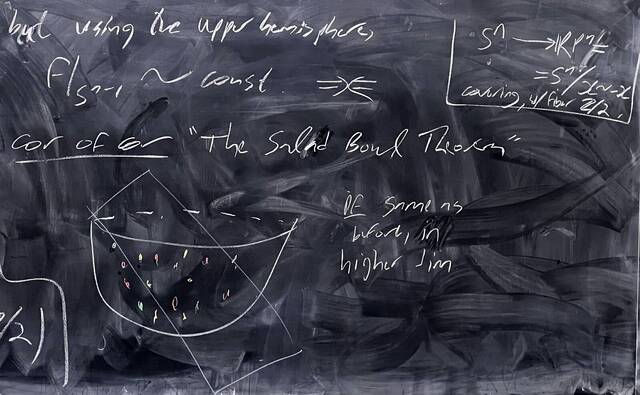 but using the upper hemisphere,
f|Sⁿ⁻¹ ~ const. ⇒⇐
Sⁿ → RPⁿ
= Sⁿ/x~-x
covering, w/ fiber Z/2.
cor of cor "The Salad Bowl Theorem"
pf same as
before, in
higher dim
/2)